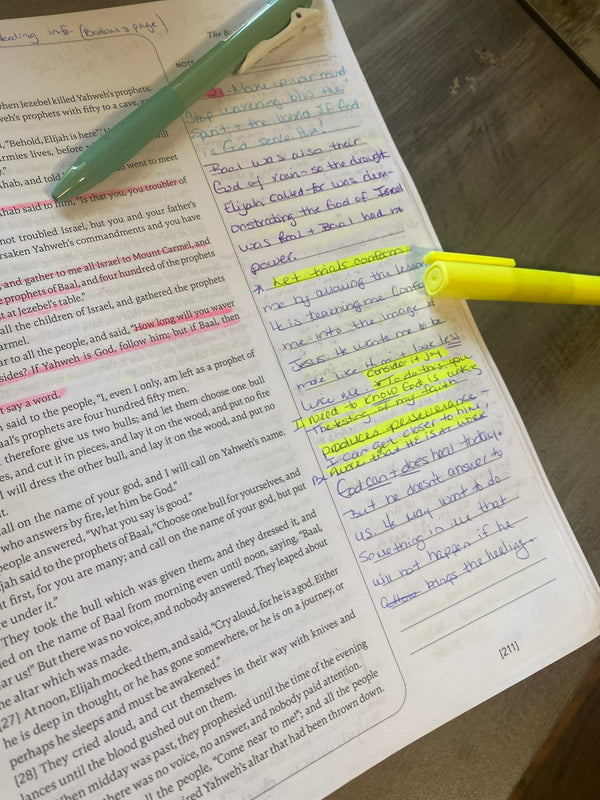 ealing info (Bottom of page)
The B
NOTE
hen Jezebel killed Yahweh's prophets,
weh's prophets with fifty to a cave, a
y."
"Behold, Elijah is here"
armies lives, before
hab, and told
went to meet
hab said to him, "Is that you, you troubler of
not troubled Israel, but you and your father's
rsaken Yahweh's commandments and you have
, and gather to me all Israel to Mount Carmel, and
e prophets of Baal, and four hundred of the prophets
at at Jezebel's table."
all the children of Israel, and gathered the prophets
armel.
ar to all the people, and said, "How long will you waver
sides? If Yahweh is God, follow him; but if Baal, then
t say a word.
said to the people, "I, even I only, am left as a prophet of
aal's prophets are four hundred fifty men.
therefore give us two bulls; and let them choose one bull
es, and cut it in pieces, and lay it on the wood, and put no fire
I will dress the other bull, and lay it on the wood, and put no
it.
all on the name of your god, and I will call on Yahweh's name.
who answers by fire, let him be God."
people answered, "What you say is good."
jah said to the prophets of Baal, "Choose one bull for yourselves, and
it first, for you are many; and call on the name of your god, but put
e under it."
They took the bull which was given them, and they dressed it, and
ed on the name of Baal from morning even until noon, saying, "Baal,
ar us!" But there was no voice, and nobody answered. They leaped about
he altar which was made.
[27] At noon, Elijah mocked them, and said, "Cry aloud, for he is a god. Either
he is deep in thought, or he has gone somewhere, or he is on a journey, or
perhaps he sleeps and must be awakened."
[28] They cried aloud, and cut themselves in their way with knives and
lances until the blood gushed out on them.
When midday was past, they prophesied until the time of the evening
here was no voice, no answer, and nobody paid attention.
ll the people, "Come near to me!"; and all the people
ired Yahweh's altar that had been thrown down.
21 - Make up your mind
Stop wavering btw the
Spirit + the world. If God
is God serve Him!
Baal was also their
God of rain - so the drought
Elijah called for was dem-
onstrating the God of Israel
was Real + Baal had no
power.
* Let trials conform
me by allowing the lesson
It is teaching me
me into the image of
Jesus. He wants me to be
more like Him + look less
like me
Consider it joy
* To do this you
need to know God is working
The testing of my faith
produces perseverance -
I can get closer to him,
Praise that HE is at work
God can + does heal today.
But he doesn't answer to
us. He may want to do
something in us that
will not happen if he
brings the healing
[211]